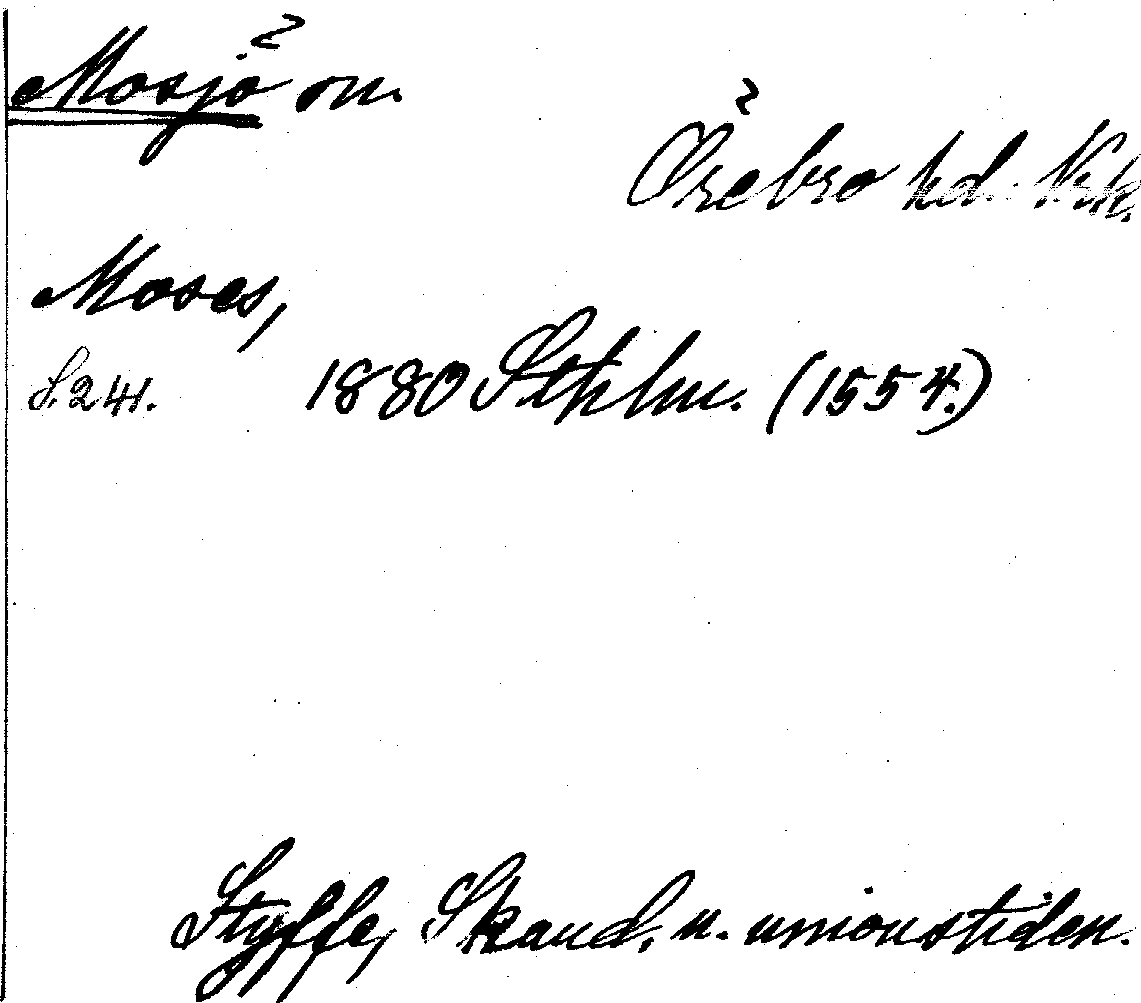 Mosjö sn.
Örebro hd. Nrk.
Moses,
S. 241. 1880 Sthlm. (1554.)
Styffe, Skand. u. unionstiden.